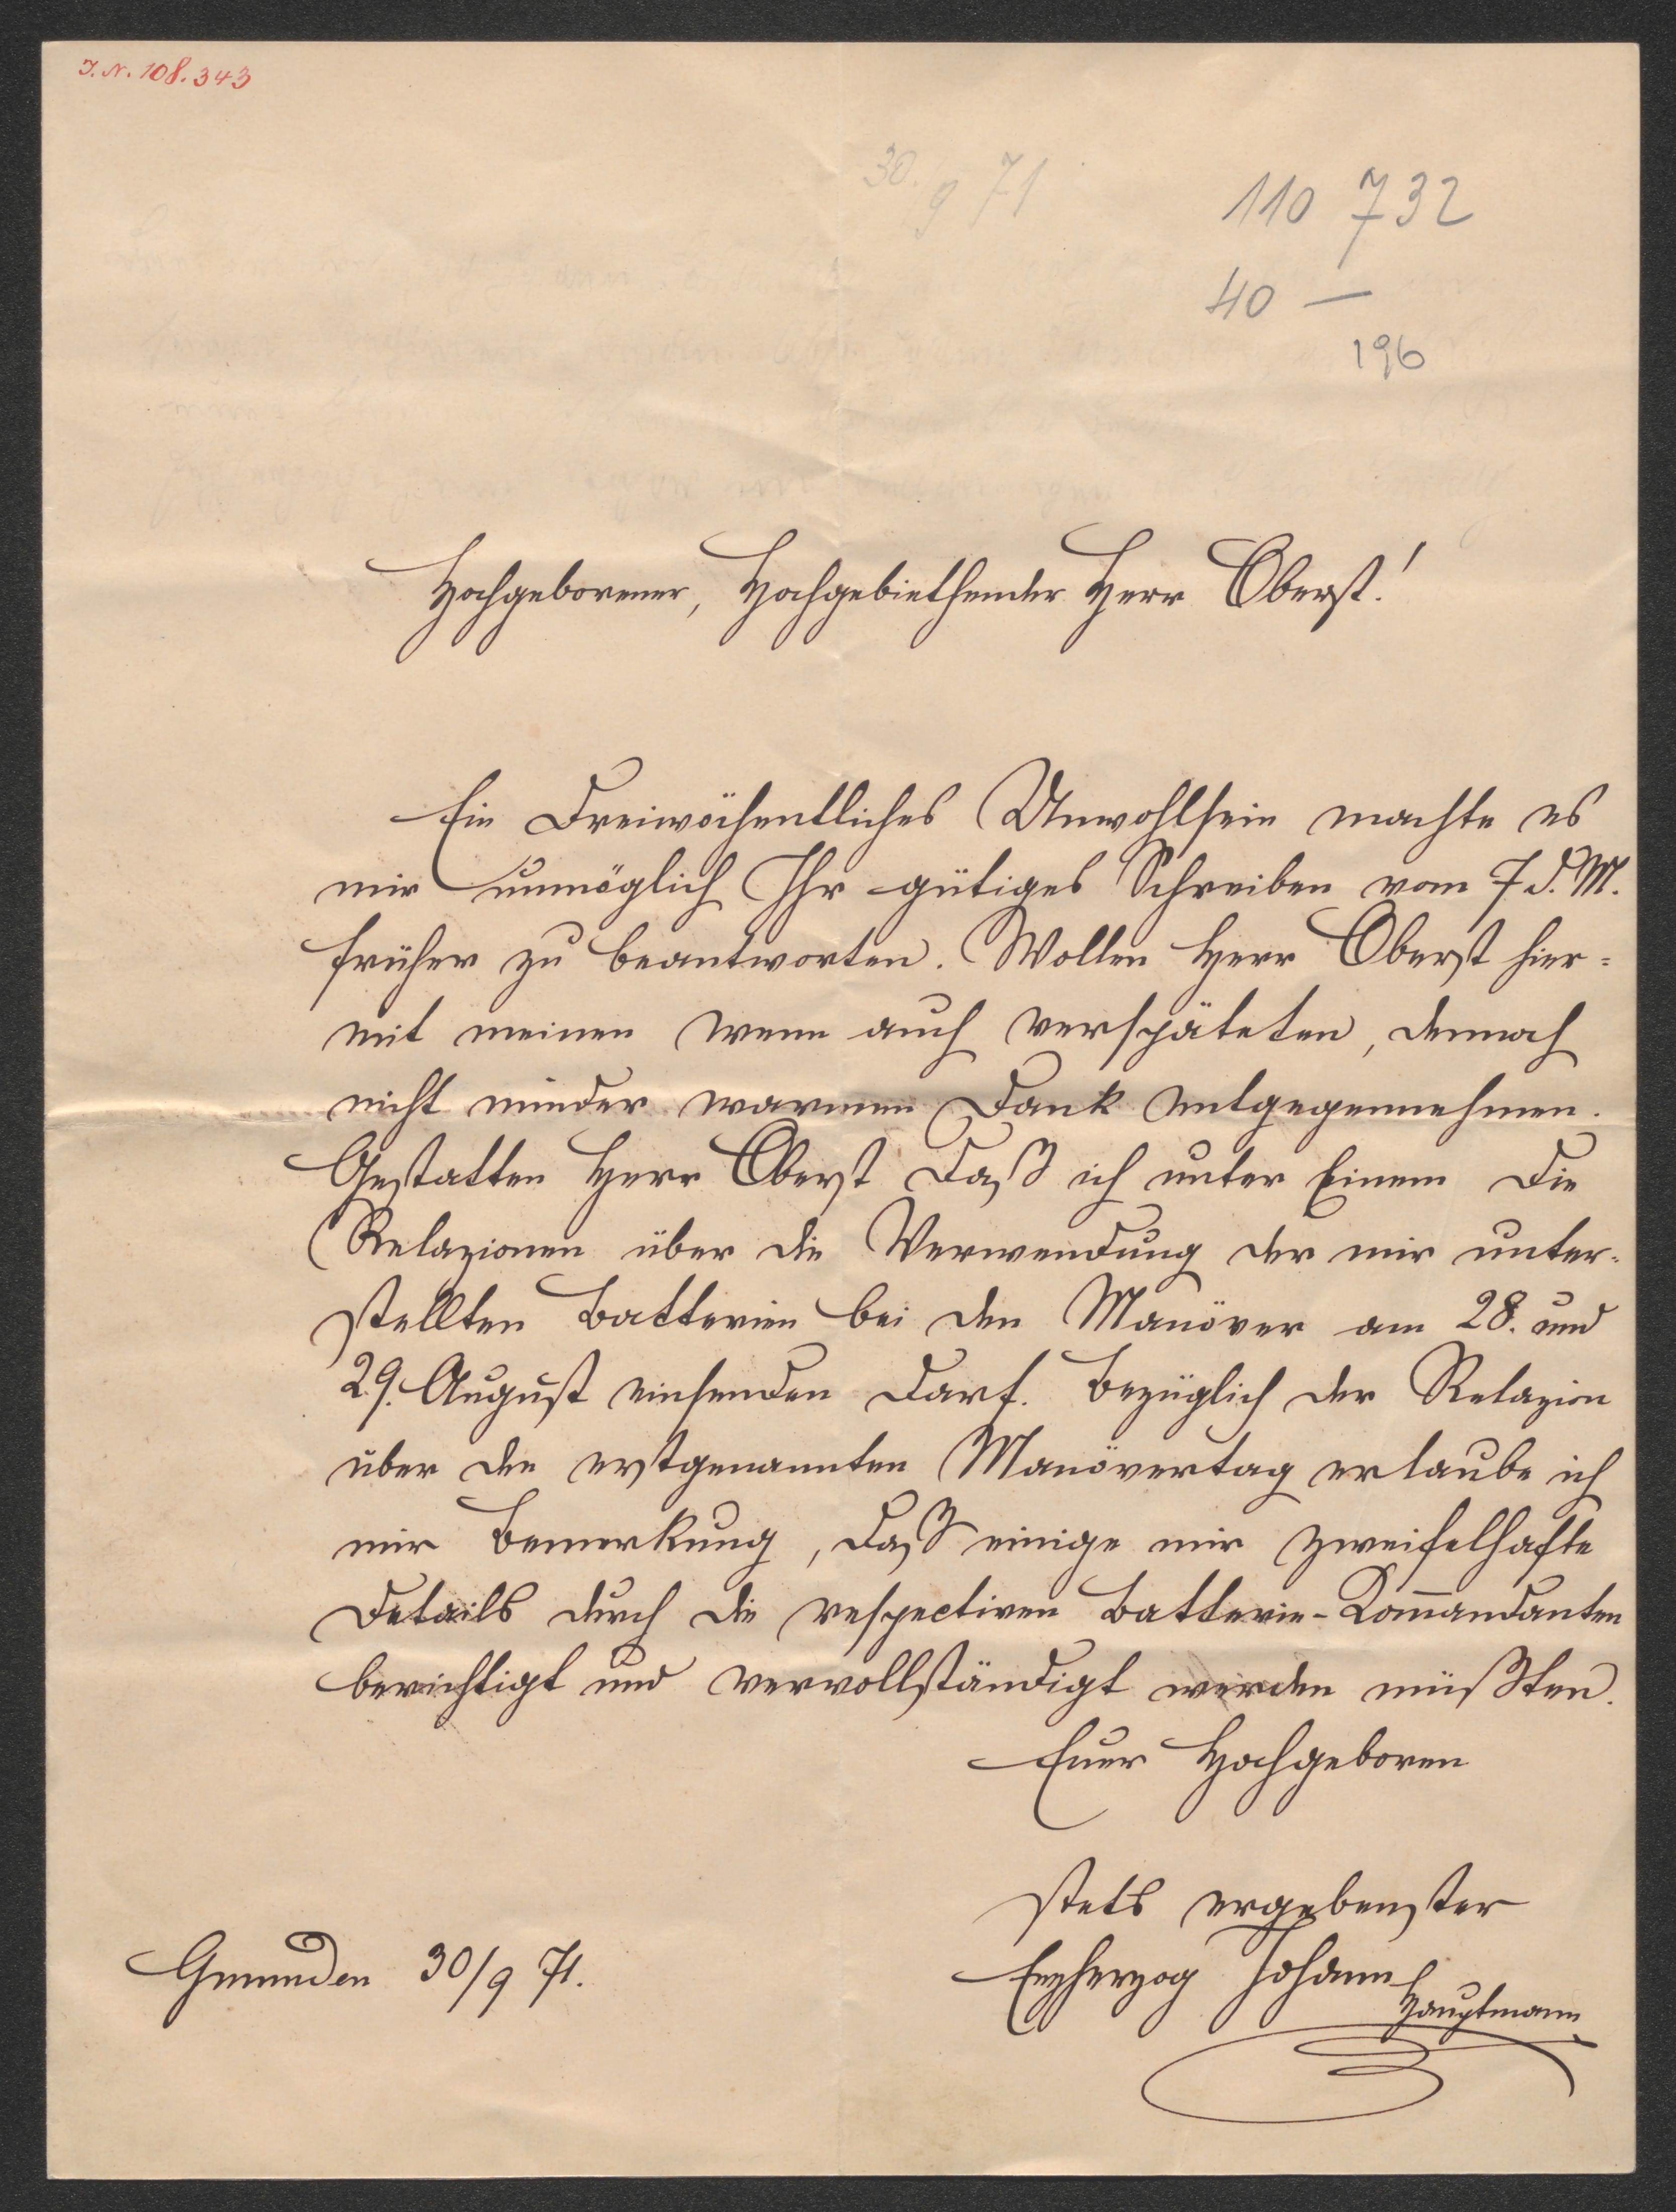 I. N. 108.343
30. 9 71
110 732
40 —
196
Hochgeborener, Hochgebiethender Herr Oberst!
Ein dreiwöchentliches Unwohlsein machte es
mir unmöglich Ihr gütiges Schreiben vom 7 d. M.
früher zu beantworten. Wollen Herr Oberst hier=
mit meinen wenn auch verspäteten, dennoch
nicht minder warmen Dank entgegennehmen.
Gestatten Herr Oberst daß ich unter Einem die
Relazionen über die Verwendung der mir unter-
stellten Batterien bei den Manöver am 28. und
29. August einsenden darf. Bezüglich der Relazion
über den erstgenannten Manövertag erlaube ich
mir Bemerkung, daß einige mir zweifelhafte
Details durch die respectiven Batterie-Kom̄andanten
berichtigt und vervollständigt werden müßten.
Euer Hochgeboren
stets ergebenster
Gmunden 30/9 71.
Erzherzog Johann
Hauptmann